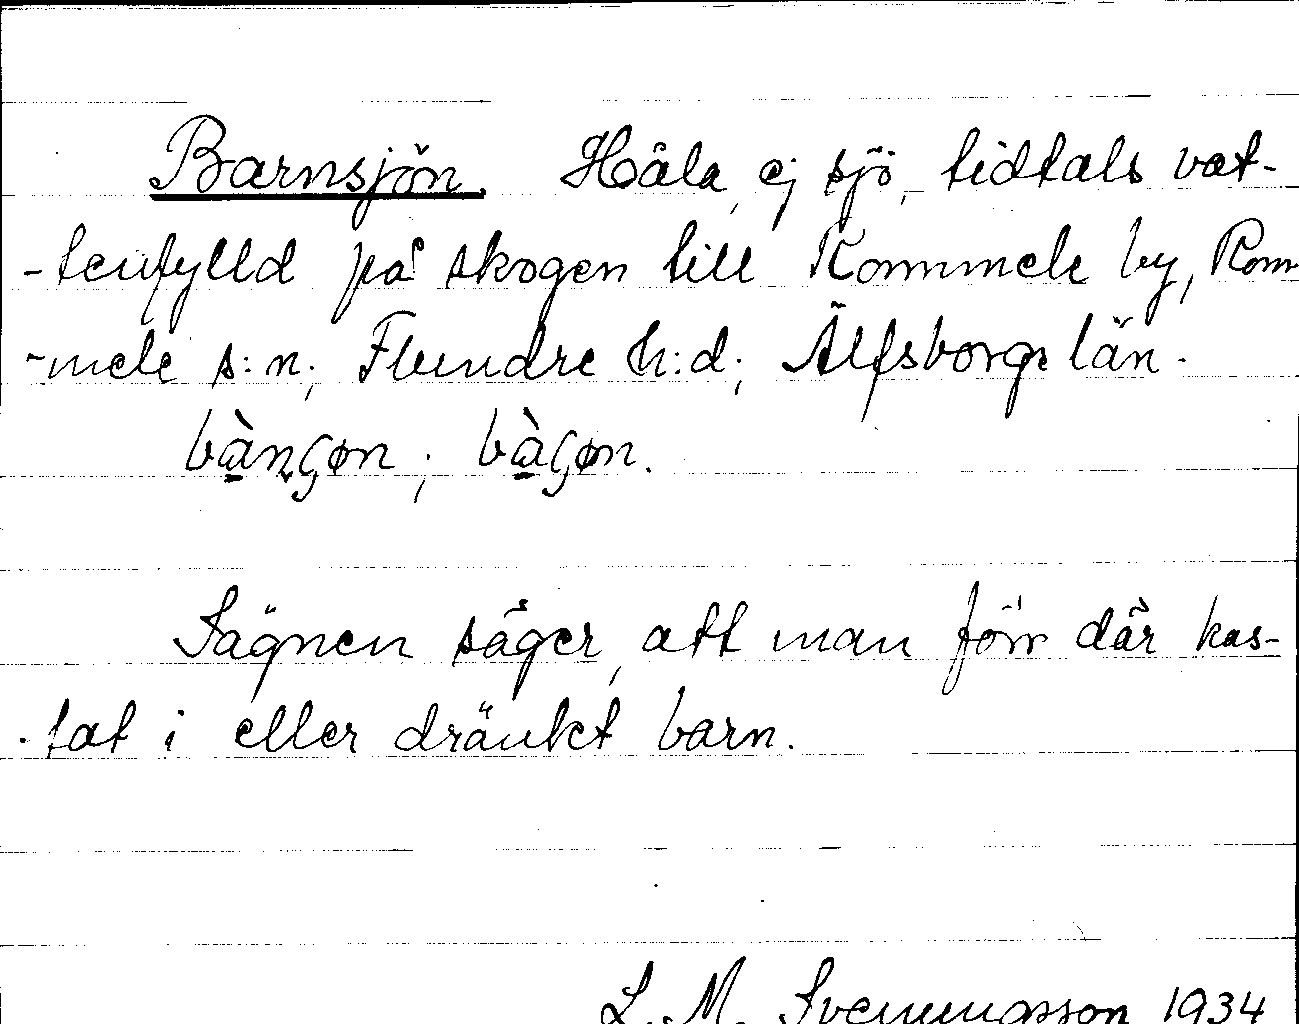 Barnsjön. Håla, ej sjö, tidtals vat-
-tenfylld på skogen till Rommele by, Rom-
-mele s:n; Flundre h:d; Älfsborgs län.
Sägnen säger, att man förr där kas-
-tat i eller dränkt barn.
L. M. Svenungsson 1934